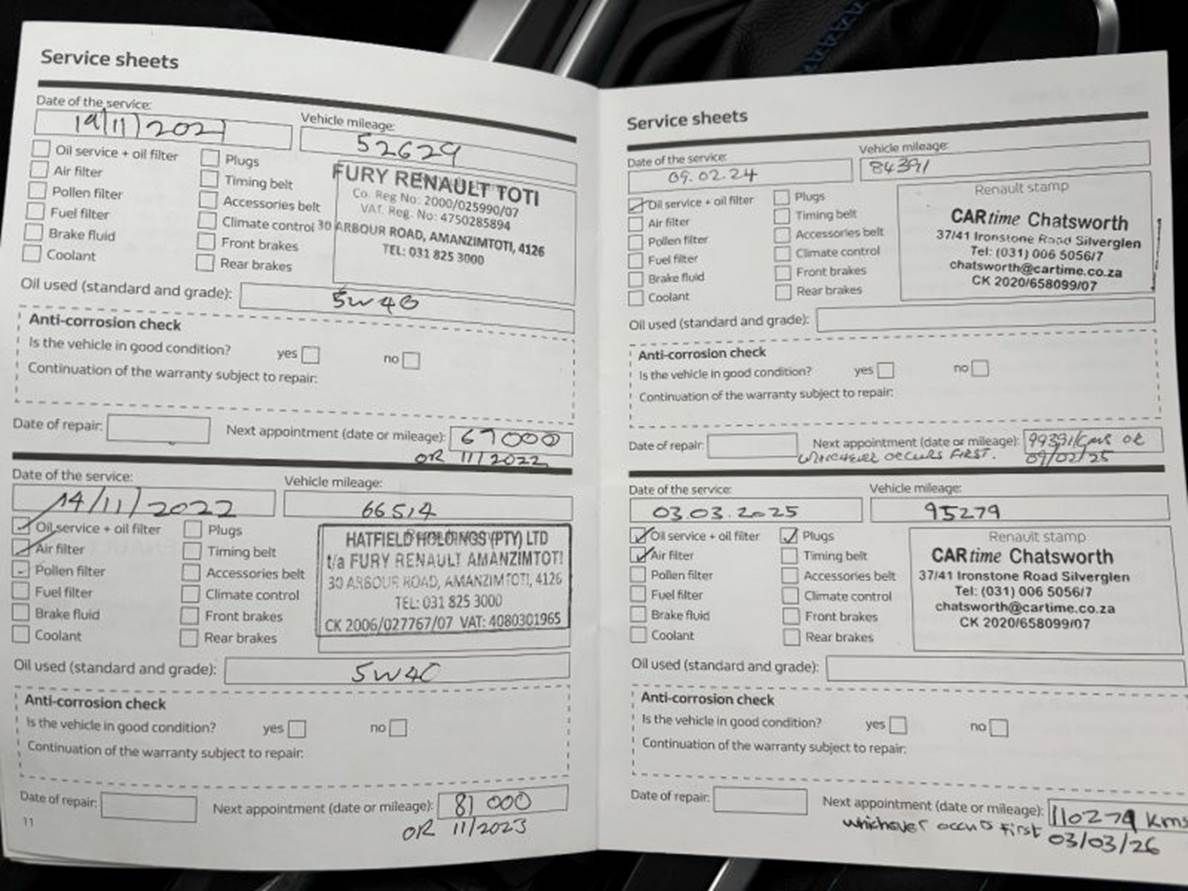 Service sheets
Date of the service:
19/11/2021
Vehicle mileage:
52629
Oil service + oil filter
Plugs
Air filter
Timing belt
Pollen filter
Accessories belt
Fuel filter
Climate control
Brake fluid
Front brakes
Coolant
Rear brakes
FURY RENAULT TOTI
Co. Reg No: 2000/025990/07
VAT. Reg. No: 4750285894
30 ARBOUR ROAD, AMANZIMTOTI, 4126
TEL: 031 825 3000
Oil used (standard and grade):
5W40
Anti-corrosion check
Is the vehicle in good condition? yes no
Continuation of the warranty subject to repair:
Date of repair:
Next appointment (date or mileage):
67000
OR 11/2022
Date of the service:
14/11/2022
Vehicle mileage:
66514
Oil service + oil filter
Plugs
Air filter
Timing belt
Pollen filter
Accessories belt
Fuel filter
Climate control
Brake fluid
Front brakes
Coolant
Rear brakes
HATFIELD HOLDINGS (PTY) LTD
t/a FURY RENAULT AMANZIMTOTI
30 ARBOUR ROAD, AMANZIMTOTI, 4126
TEL: 031 825 3000
CK 2006/027767/07 VAT: 4080301965
Oil used (standard and grade):
5W40
Anti-corrosion check
Is the vehicle in good condition? yes no
Continuation of the warranty subject to repair:
Date of repair:
Next appointment (date or mileage):
81 000
OR 11/2023
11
Service sheets
Date of the service:
09.02.24
Vehicle mileage:
84391
Oil service + oil filter
Plugs
Air filter
Timing belt
Pollen filter
Accessories belt
Fuel filter
Climate control
Brake fluid
Front brakes
Coolant
Rear brakes
Renault stamp
CARtime Chatsworth
37/41 Ironstone Road Silverglen
Tel: (031) 006 5056/7
chatsworth@cartime.co.za
CK 2020/658099/07
Oil used (standard and grade):
Anti-corrosion check
Is the vehicle in good condition? yes no
Continuation of the warranty subject to repair:
Date of repair:
Next appointment (date or mileage):
99391 kms or
whichever occurs first. 09/02/25
Date of the service:
03.03.2025
Vehicle mileage:
95279
Oil service + oil filter
Plugs
Air filter
Timing belt
Pollen filter
Accessories belt
Fuel filter
Climate control
Brake fluid
Front brakes
Coolant
Rear brakes
Renault stamp
CARtime Chatsworth
37/41 Ironstone Road Silverglen
Tel: (031) 006 5056/7
chatsworth@cartime.co.za
CK 2020/658099/07
Oil used (standard and grade):
Anti-corrosion check
Is the vehicle in good condition? yes no
Continuation of the warranty subject to repair:
Date of repair:
Next appointment (date or mileage):
110279 kms
whichever occurs first 03/03/26